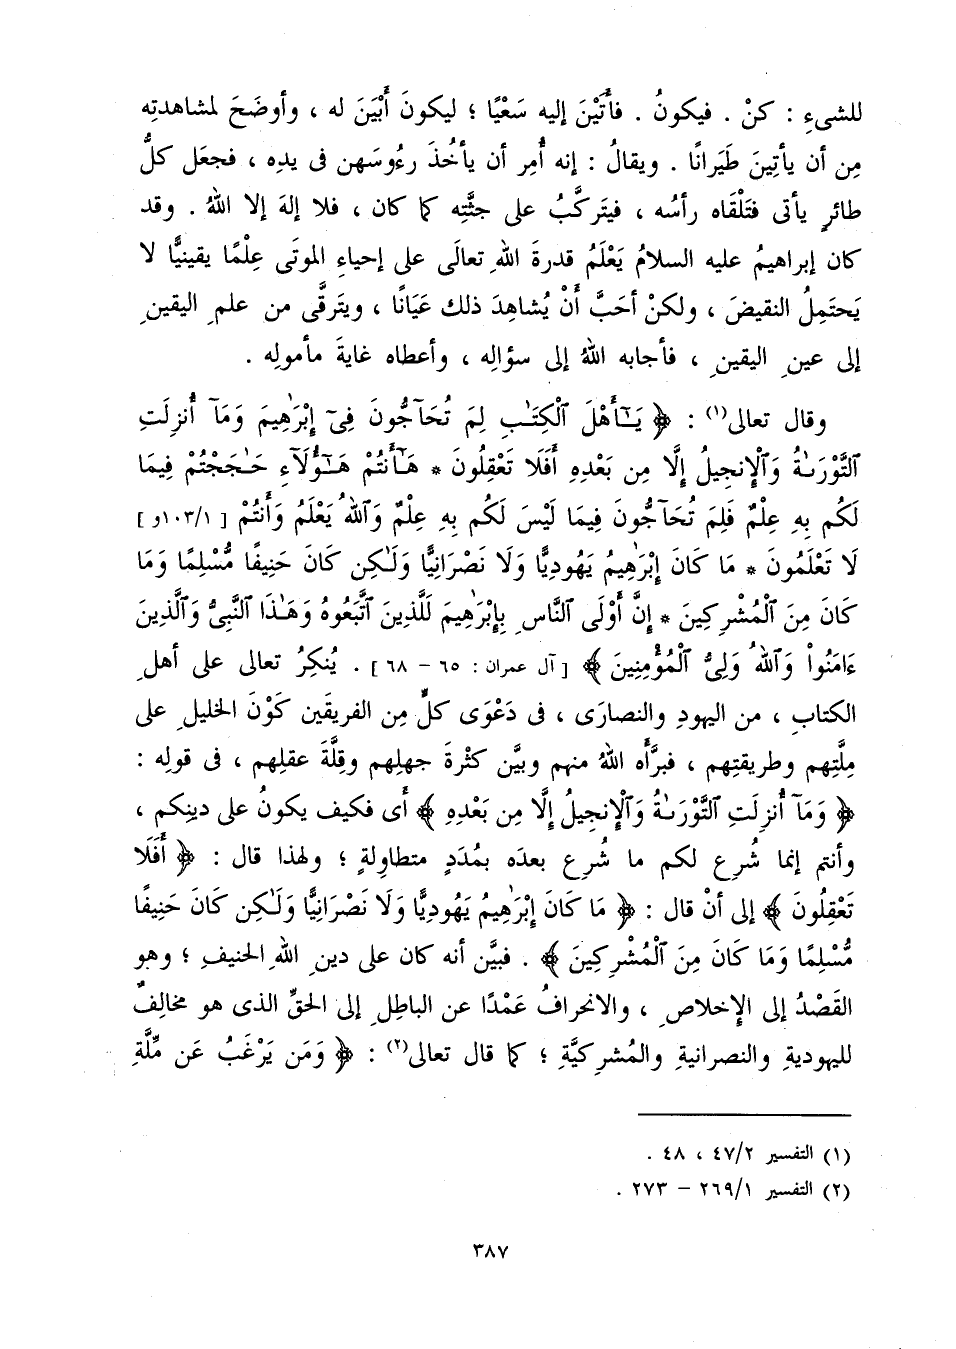 للشىءِ : كنْ . فيكونُ . فأتَيْنَ إليه سَعْيًا ؛ ليكونَ أَبْيَنَ له ، وأوضَحَ لمشاهدتِه
مِن أن يأتِينَ طَيَرانًا . ويقالُ : إنه أُمِر أن يأخُذَ رءُوسَهن فى يدِه ، فجعَل كلُّ
طائرٍ يأتى فتَلْقَاه رأسُه ، فيتَركَّبُ على جثَّتِه كما كان ، فلا إلهَ إلا اللهُ . وقد
كان إبراهيمُ عليه السلامُ يَعْلَمُ قدرةَ اللهِ تعالَى على إحياءِ الموتَى عِلْمًا يقينيًّا لا
يَحتَمِلُ النقيضَ ، ولكنْ أحَبَّ أنْ يُشاهِدَ ذلك عَيَانًا ، ويتَرقَّى من علمِ اليقينِ
إلى عينِ اليقينِ ، فأجابه اللهُ إلى سؤالِه ، وأعطاه غايةَ مأمولِه .
وقال تعالى(١) : ﴿ يَـٰٓأَهْلَ ٱلْكِتَـٰبِ لِمَ تُحَآجُّونَ فِىٓ إِبْرَٰهِيمَ وَمَآ أُنزِلَتِ
ٱلتَّوْرَىٰةُ وَٱلْإِنجِيلُ إِلَّا مِن بَعْدِهِ أَفَلَا تَعْقِلُونَ * هَـٰٓأَنتُمْ هَـٰٓؤُلَآءِ حَـٰجَجْتُمْ فِيمَا
لَكُم بِهِ عِلْمٌ فَلِمَ تُحَآجُّونَ فِيمَا لَيْسَ لَكُم بِهِ عِلْمٌ وَٱللهُ يَعْلَمُ وَأَنتُمْ [ ١٠٣/١و ]
لَا تَعْلَمُونَ * مَا كَانَ إِبْرَٰهِيمُ يَهُودِيًّا وَلَا نَصْرَانِيًّا وَلَـٰكِن كَانَ حَنِيفًا مُّسْلِمًا وَمَا
كَانَ مِنَ ٱلْمُشْرِكِينَ * إِنَّ أَوْلَى ٱلنَّاسِ بِإِبْرَٰهِيمَ لَلَّذِينَ ٱتَّبَعُوهُ وَهَـٰذَا ٱلنَّبِىُّ وَٱلَّذِينَ
ءَامَنُوا۟ وَٱللهُ وَلِىُّ ٱلْمُؤْمِنِينَ ﴾ [ آل عمران : ٦٥ – ٦٨ ] . يُنكِرُ تعالى على أهلِ
الكتابِ ، من اليهودِ والنصارَى ، فى دَعْوَى كلٍّ مِن الفريقَين كَوْنَ الخليلِ على
مِلَّتِهم وطريقتِهم ، فبرَّأه اللهُ منهم وبيَّن كثْرةَ جهلِهم وقِلَّةَ عقلِهم ، فى قولِه :
﴿ وَمَآ أُنزِلَتِ ٱلتَّوْرَىٰةُ وَٱلْإِنجِيلُ إِلَّا مِن بَعْدِهِ ﴾ أى فكيف يكونُ على دينِكم ،
وأنتم إنما شُرِع لكم ما شُرِع بعدَه بمُدَدٍ متطاوِلةٍ ؛ ولهذا قال : ﴿ أَفَلَا
تَعْقِلُونَ ﴾ إلى أنْ قال : ﴿ مَا كَانَ إِبْرَٰهِيمُ يَهُودِيًّا وَلَا نَصْرَانِيًّا وَلَـٰكِن كَانَ حَنِيفًا
مُّسْلِمًا وَمَا كَانَ مِنَ ٱلْمُشْرِكِينَ ﴾ . فبيَّن أنه كان على دينِ اللهِ الحنيفِ ؛ وهو
القَصْدُ إلى الإخلاصِ ، والانحرافُ عَمْدًا عن الباطلِ إلى الحقِّ الذى هو مخالِفٌ
لليهوديةِ والنصرانيةِ والمُشركِيَّةِ ؛ كما قال تعالى(٢) : ﴿ وَمَن يَرْغَبُ عَن مِّلَّةِ
(١) التفسير ٤٧/٢ ، ٤٨ .
(٢) التفسير ٢٦٩/١ – ٢٧٣ .
٣٨٧